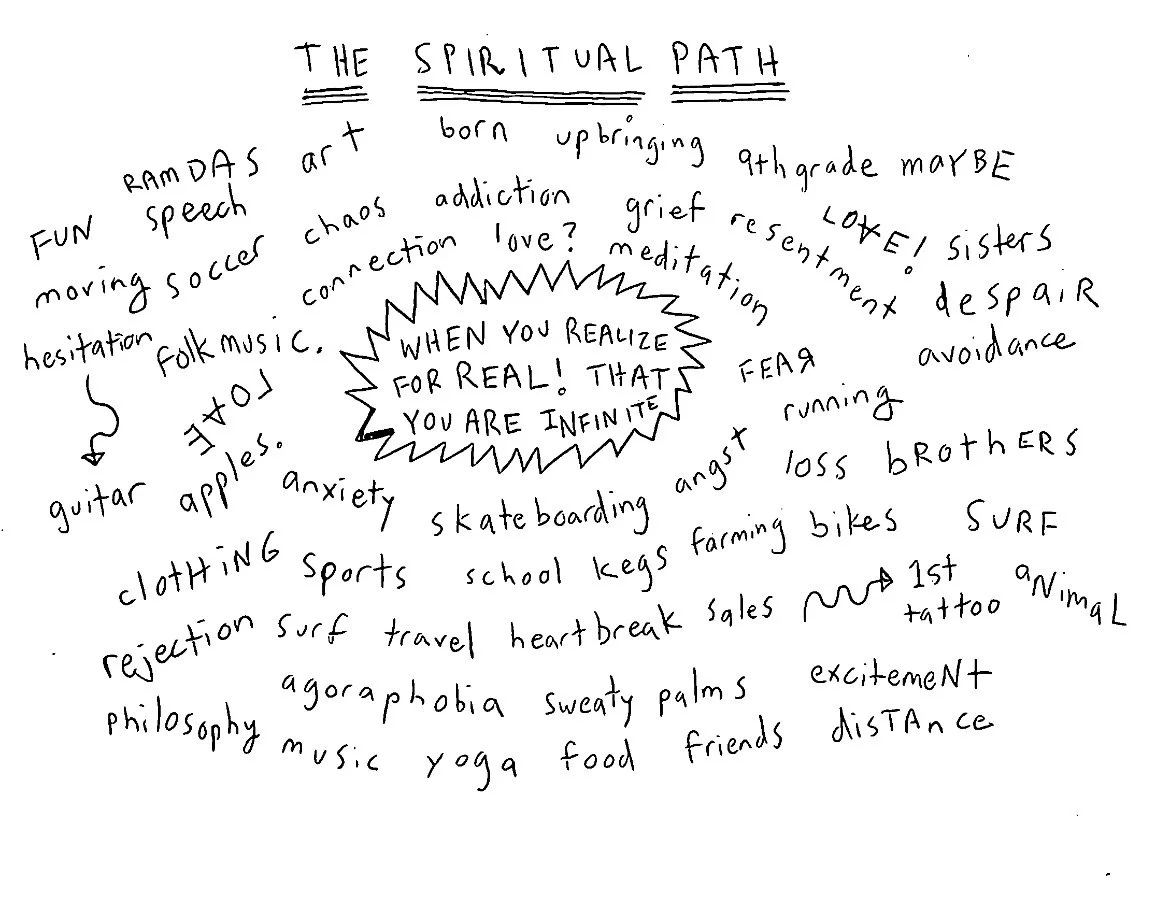 THE SPIRITUAL PATH
born upbringing 9th grade MAYBE
RAMDAS art
FUN speech chaos addiction grief resentment LOVE! sisters
moving soccer connection love? meditation despaiR
hesitation folkmusic. avoidance
WHEN YOU REALIZE
FOR REAL! THAT
YOU ARE INFINITE
FEAR
LOVE running
guitar apples. anxiety skateboarding angst loss bRothERS
clotHiNG sports school kegs farming bikes SURF
rejection surf travel heartbreak sales 1st
tattoo aNimaL
agoraphobia sweaty palms excitemeNt
philosophy music yoga food friends disTAnce